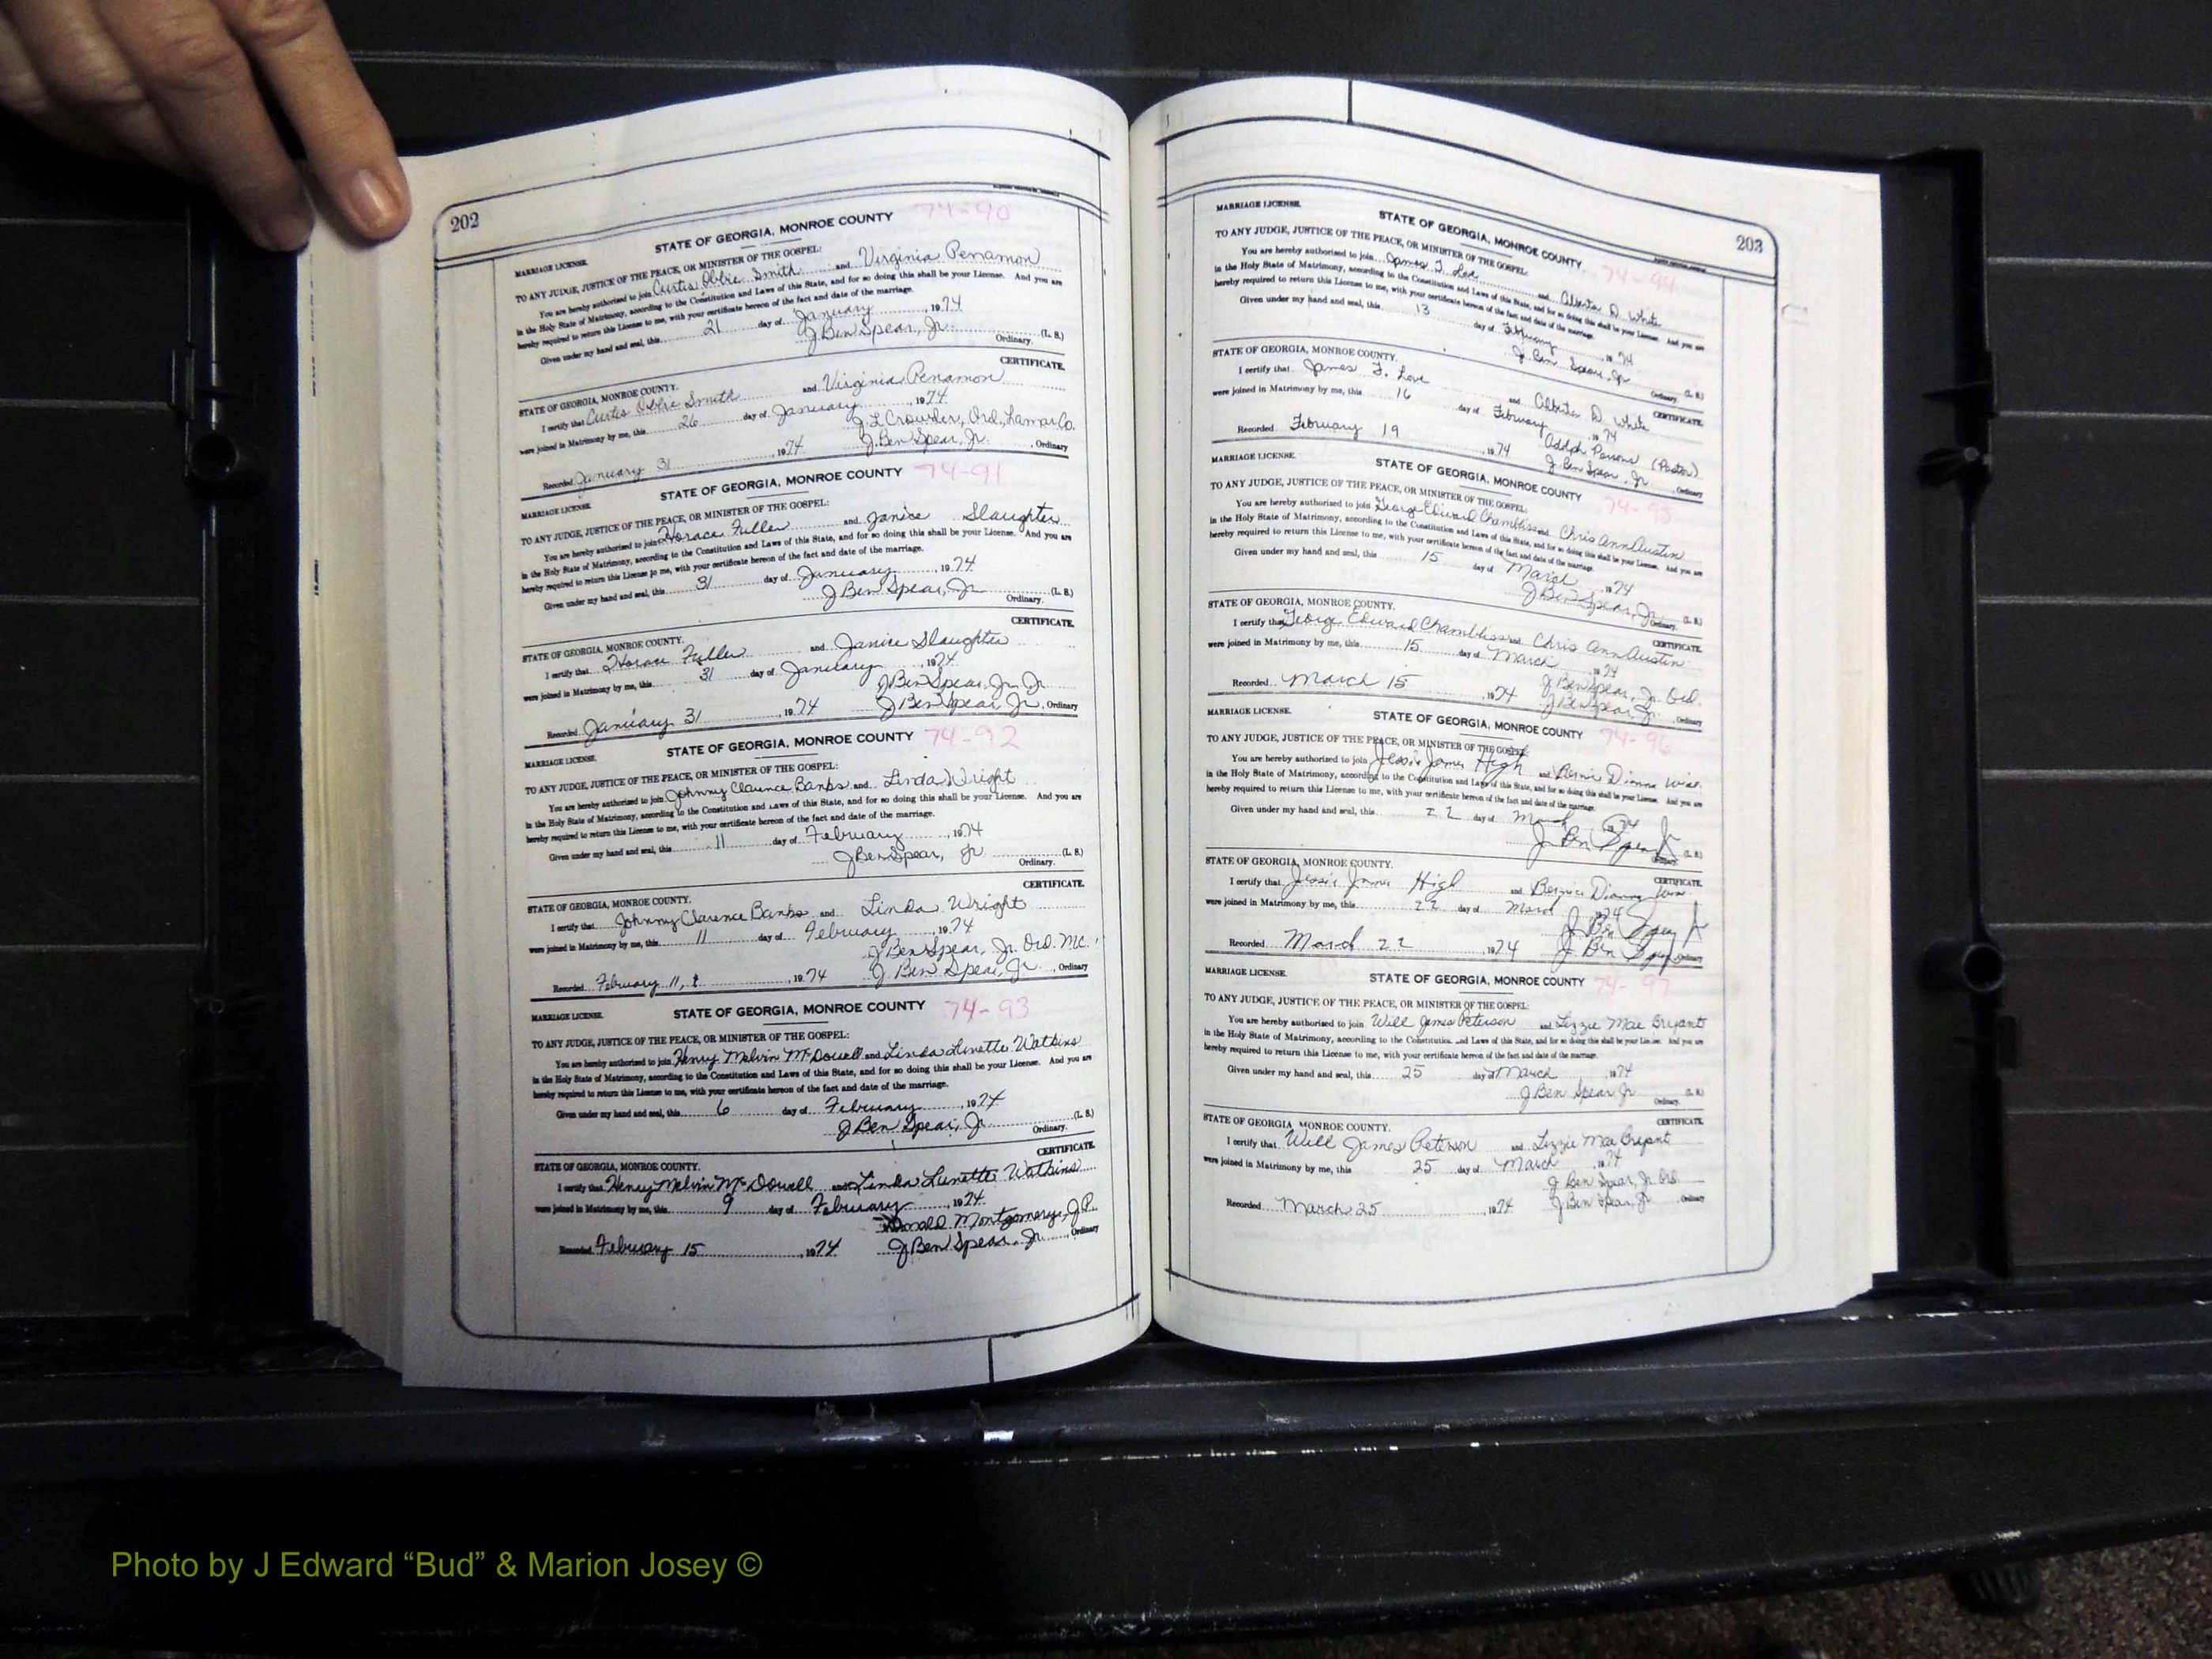 202
74-90
STATE OF GEORGIA, MONROE COUNTY
MARRIAGE LICENSE.
TO ANY JUDGE, JUSTICE OF THE PEACE, OR MINISTER OF THE GOSPEL:
You are hereby authorized to join Curtis Obbie Smith and Virginia Penamon
in the Holy State of Matrimony, according to the Constitution and Laws of this State, and for so doing this shall be your License. And you are
hereby required to return this License to me, with your certificate hereon of the fact and date of the marriage.
Given under my hand and seal, this 21 day of January, 1974
J Ben Spear, Jr. (L. S.)
Ordinary.
CERTIFICATE.
STATE OF GEORGIA, MONROE COUNTY.
I certify that Curtis Obbie Smith and Virginia Penamon
were joined in Matrimony by me, this 26 day of January, 1974
J. L Crowder, Ord., Lamar Co.
Recorded January 31, 1974 J. Ben Spear, Jr., Ordinary
STATE OF GEORGIA, MONROE COUNTY 74-91
MARRIAGE LICENSE.
TO ANY JUDGE, JUSTICE OF THE PEACE, OR MINISTER OF THE GOSPEL:
You are hereby authorized to join Horace Fuller and Janice Slaughter
in the Holy State of Matrimony, according to the Constitution and Laws of this State, and for so doing this shall be your License. And you are
hereby required to return this License to me, with your certificate hereon of the fact and date of the marriage.
Given under my hand and seal, this 31 day of January, 1974
J Ben Spear, Jr (L. S.)
Ordinary.
CERTIFICATE.
STATE OF GEORGIA, MONROE COUNTY.
I certify that Horace Fuller and Janice Slaughter
were joined in Matrimony by me, this 31 day of January, 1974
J Ben Spear, Jr. Jr
Recorded January 31, 1974 J Ben Spear, Jr., Ordinary
STATE OF GEORGIA, MONROE COUNTY 74-92
MARRIAGE LICENSE.
TO ANY JUDGE, JUSTICE OF THE PEACE, OR MINISTER OF THE GOSPEL:
You are hereby authorized to join Johnny Clarence Banks and Linda Wright
in the Holy State of Matrimony, according to the Constitution and Laws of this State, and for so doing this shall be your License. And you are
hereby required to return this License to me, with your certificate hereon of the fact and date of the marriage.
Given under my hand and seal, this 11 day of February, 1974
J Ben Spear, Jr (L. S.)
Ordinary.
CERTIFICATE.
STATE OF GEORGIA, MONROE COUNTY.
I certify that Johnny Clarence Banks and Linda Wright
were joined in Matrimony by me, this 11 day of February, 1974
J Ben Spear, Jr. Ord. MC.
Recorded February 11, 1974 J. Ben Spear, Jr., Ordinary
STATE OF GEORGIA, MONROE COUNTY 74-93
MARRIAGE LICENSE.
TO ANY JUDGE, JUSTICE OF THE PEACE, OR MINISTER OF THE GOSPEL:
You are hereby authorized to join Henry Melvin McDowell and Linda Lunette Watkins
in the Holy State of Matrimony, according to the Constitution and Laws of this State, and for so doing this shall be your License. And you are
hereby required to return this License to me, with your certificate hereon of the fact and date of the marriage.
Given under my hand and seal, this 6 day of February, 1974
J Ben Spear, Jr (L. S.)
Ordinary.
CERTIFICATE.
STATE OF GEORGIA, MONROE COUNTY.
I certify that Henry Melvin McDowell and Linda Lunette Watkins
were joined in Matrimony by me, this 9 day of February, 1974
Donald Montgomery, J.P.
Recorded February 15, 1974 J Ben Spear, Jr., Ordinary
203
MARRIAGE LICENSE.
STATE OF GEORGIA, MONROE COUNTY. 74-94
TO ANY JUDGE, JUSTICE OF THE PEACE, OR MINISTER OF THE GOSPEL:
You are hereby authorized to join James F. Love and Alberta D. White
in the Holy State of Matrimony, according to the Constitution and Laws of this State, and for so doing this shall be your License. And you are
hereby required to return this License to me, with your certificate hereon of the fact and date of the marriage.
Given under my hand and seal, this 13 day of February, 1974
J. Ben Spear, Jr (L. S.)
Ordinary.
STATE OF GEORGIA, MONROE COUNTY. CERTIFICATE.
I certify that James F. Love and Alberta D. White
were joined in Matrimony by me, this 16 day of February 1974
Adolph Parsons (Pastor)
Recorded February 19, 1974 J. Ben Spear, Jr., Ordinary
MARRIAGE LICENSE.
STATE OF GEORGIA, MONROE COUNTY 74-95
TO ANY JUDGE, JUSTICE OF THE PEACE, OR MINISTER OF THE GOSPEL:
You are hereby authorized to join George Edward Chambliss and Chris Ann Austin
in the Holy State of Matrimony, according to the Constitution and Laws of this State, and for so doing this shall be your License. And you are
hereby required to return this License to me, with your certificate hereon of the fact and date of the marriage.
Given under my hand and seal, this 15 day of March, 1974
J Ben Spear, Jr. (L. S.)
Ordinary.
STATE OF GEORGIA, MONROE COUNTY. CERTIFICATE.
I certify that George Edward Chambliss and Chris Ann Austin
were joined in Matrimony by me, this 15 day of March 1974
J Ben Spear, Jr. Ord.
Recorded March 15, 1974 J Ben Spear, Jr., Ordinary
MARRIAGE LICENSE.
STATE OF GEORGIA, MONROE COUNTY 74-96
TO ANY JUDGE, JUSTICE OF THE PEACE, OR MINISTER OF THE GOSPEL:
You are hereby authorized to join Jessie James High and Dianna
in the Holy State of Matrimony, according to the Constitution and Laws of this State, and for so doing this shall be your License. And you are
hereby required to return this License to me, with your certificate hereon of the fact and date of the marriage.
Given under my hand and seal, this 22 day of March 1974
J. Ben Spear Jr (L. S.)
Ordinary.
STATE OF GEORGIA, MONROE COUNTY. CERTIFICATE.
I certify that Jessie James High and Bernice Dianna
were joined in Matrimony by me, this 22 day of March 1974
J Ben Spear Jr
Recorded March 22, 1974 J Ben Spear, Ordinary
MARRIAGE LICENSE.
STATE OF GEORGIA, MONROE COUNTY 74-97
TO ANY JUDGE, JUSTICE OF THE PEACE, OR MINISTER OF THE GOSPEL:
You are hereby authorized to join Will James Peterson and Lizzie Mae Bryant
in the Holy State of Matrimony, according to the Constitution and Laws of this State, and for so doing this shall be your License. And you are
hereby required to return this License to me, with your certificate hereon of the fact and date of the marriage.
Given under my hand and seal, this 25 day of March, 1974
J Ben Spear, Jr (L. S.)
Ordinary.
STATE OF GEORGIA, MONROE COUNTY. CERTIFICATE.
I certify that Will James Peterson and Lizzie Mae Bryant
were joined in Matrimony by me, this 25 day of March, 1974
J Ben Spear, Jr. Ord
Recorded March 25, 1974 J Ben Spear, Jr Ordinary
Photo by J Edward “Bud” & Marion Josey ©